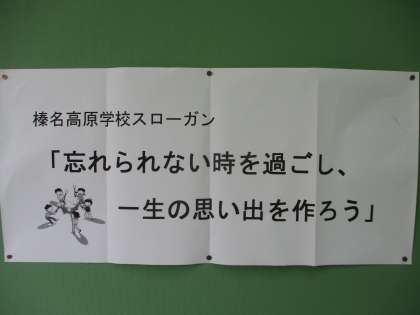 榛名高原学校スローガン
「忘れられない時を過ごし、
一生の思い出を作ろう」